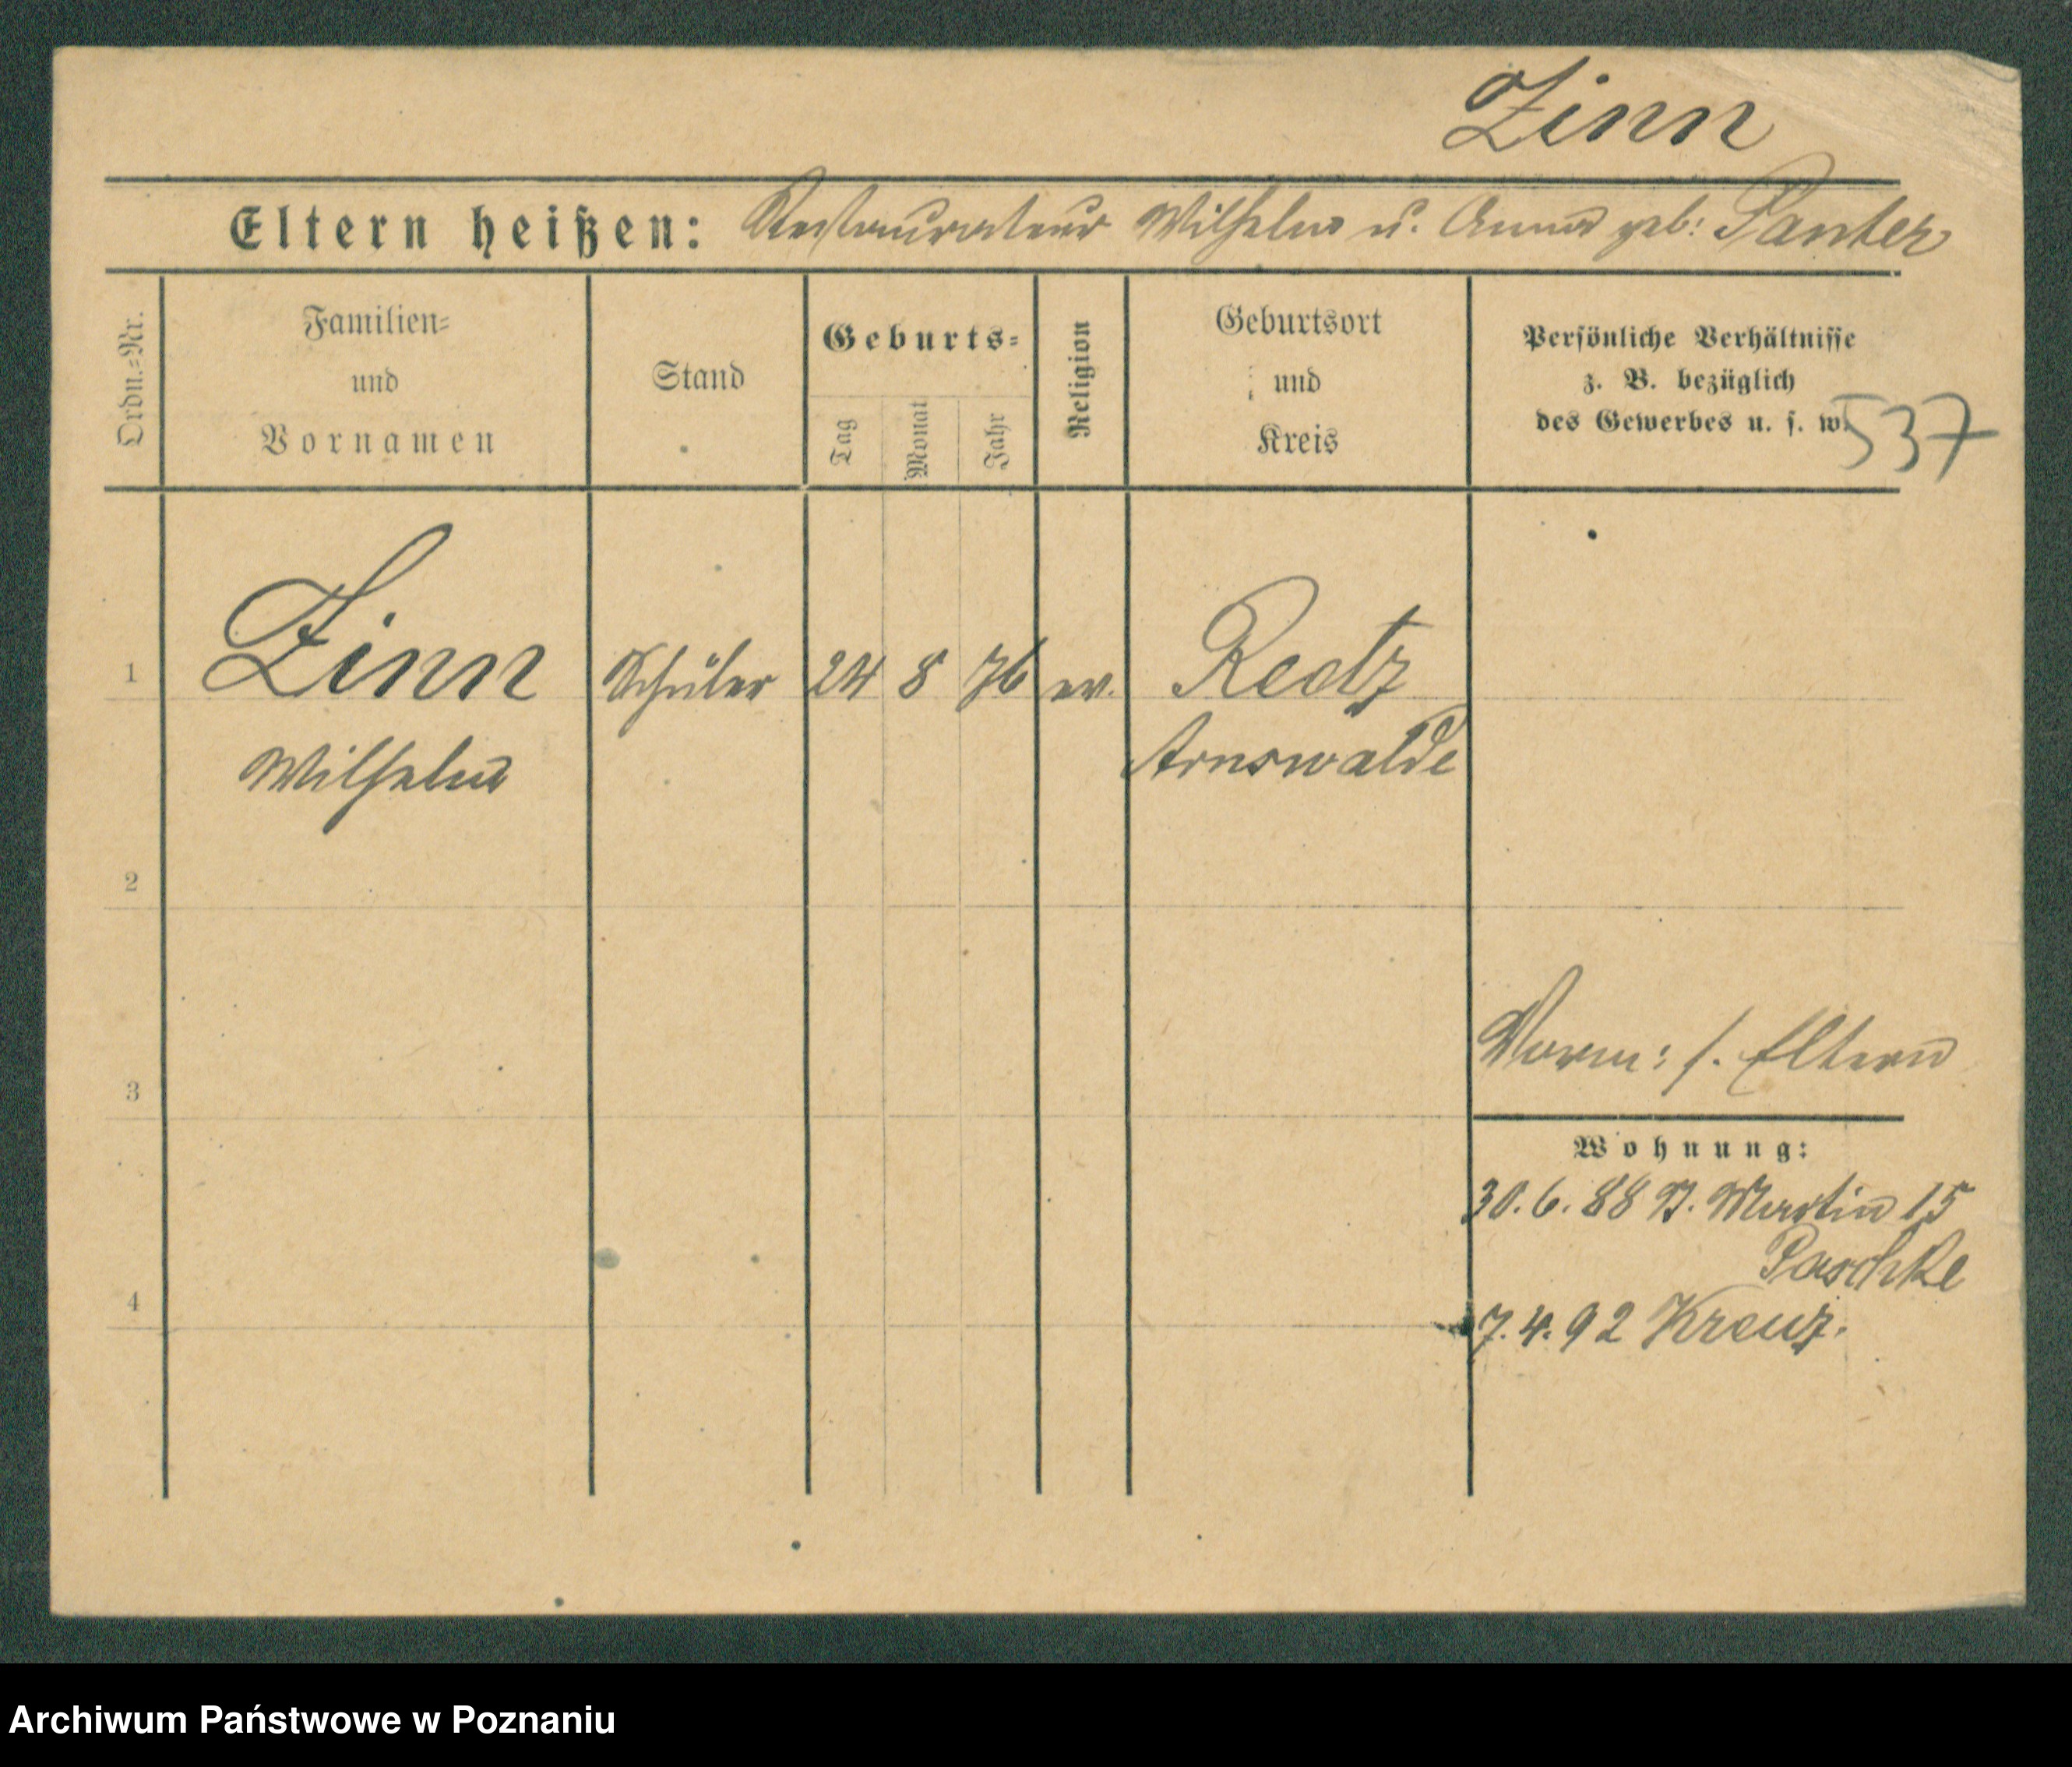 Zinn
Eltern heißen: Restaurateur Wilhelm u. Anna geb: Panter
Ordn.=Nr.
Familien=
und
Vornamen
Stand
Geburts=
Tag
Monat
Jahr
Religion
Geburtsort
und
Kreis
Persönliche Verhältnisse
z. B. bezüglich
des Gewerbes u. s. w.
537
1
Zinn
Schüler
24
8
76
ev.
Reetz
Wilhelm
Arnswalde
2
3
Vorm: s. Eltern
Wohnung:
30.6.88 St. Martin 15
Paschke
4
7.4.92 Kreuz.
Archiwum Państwowe w Poznaniu